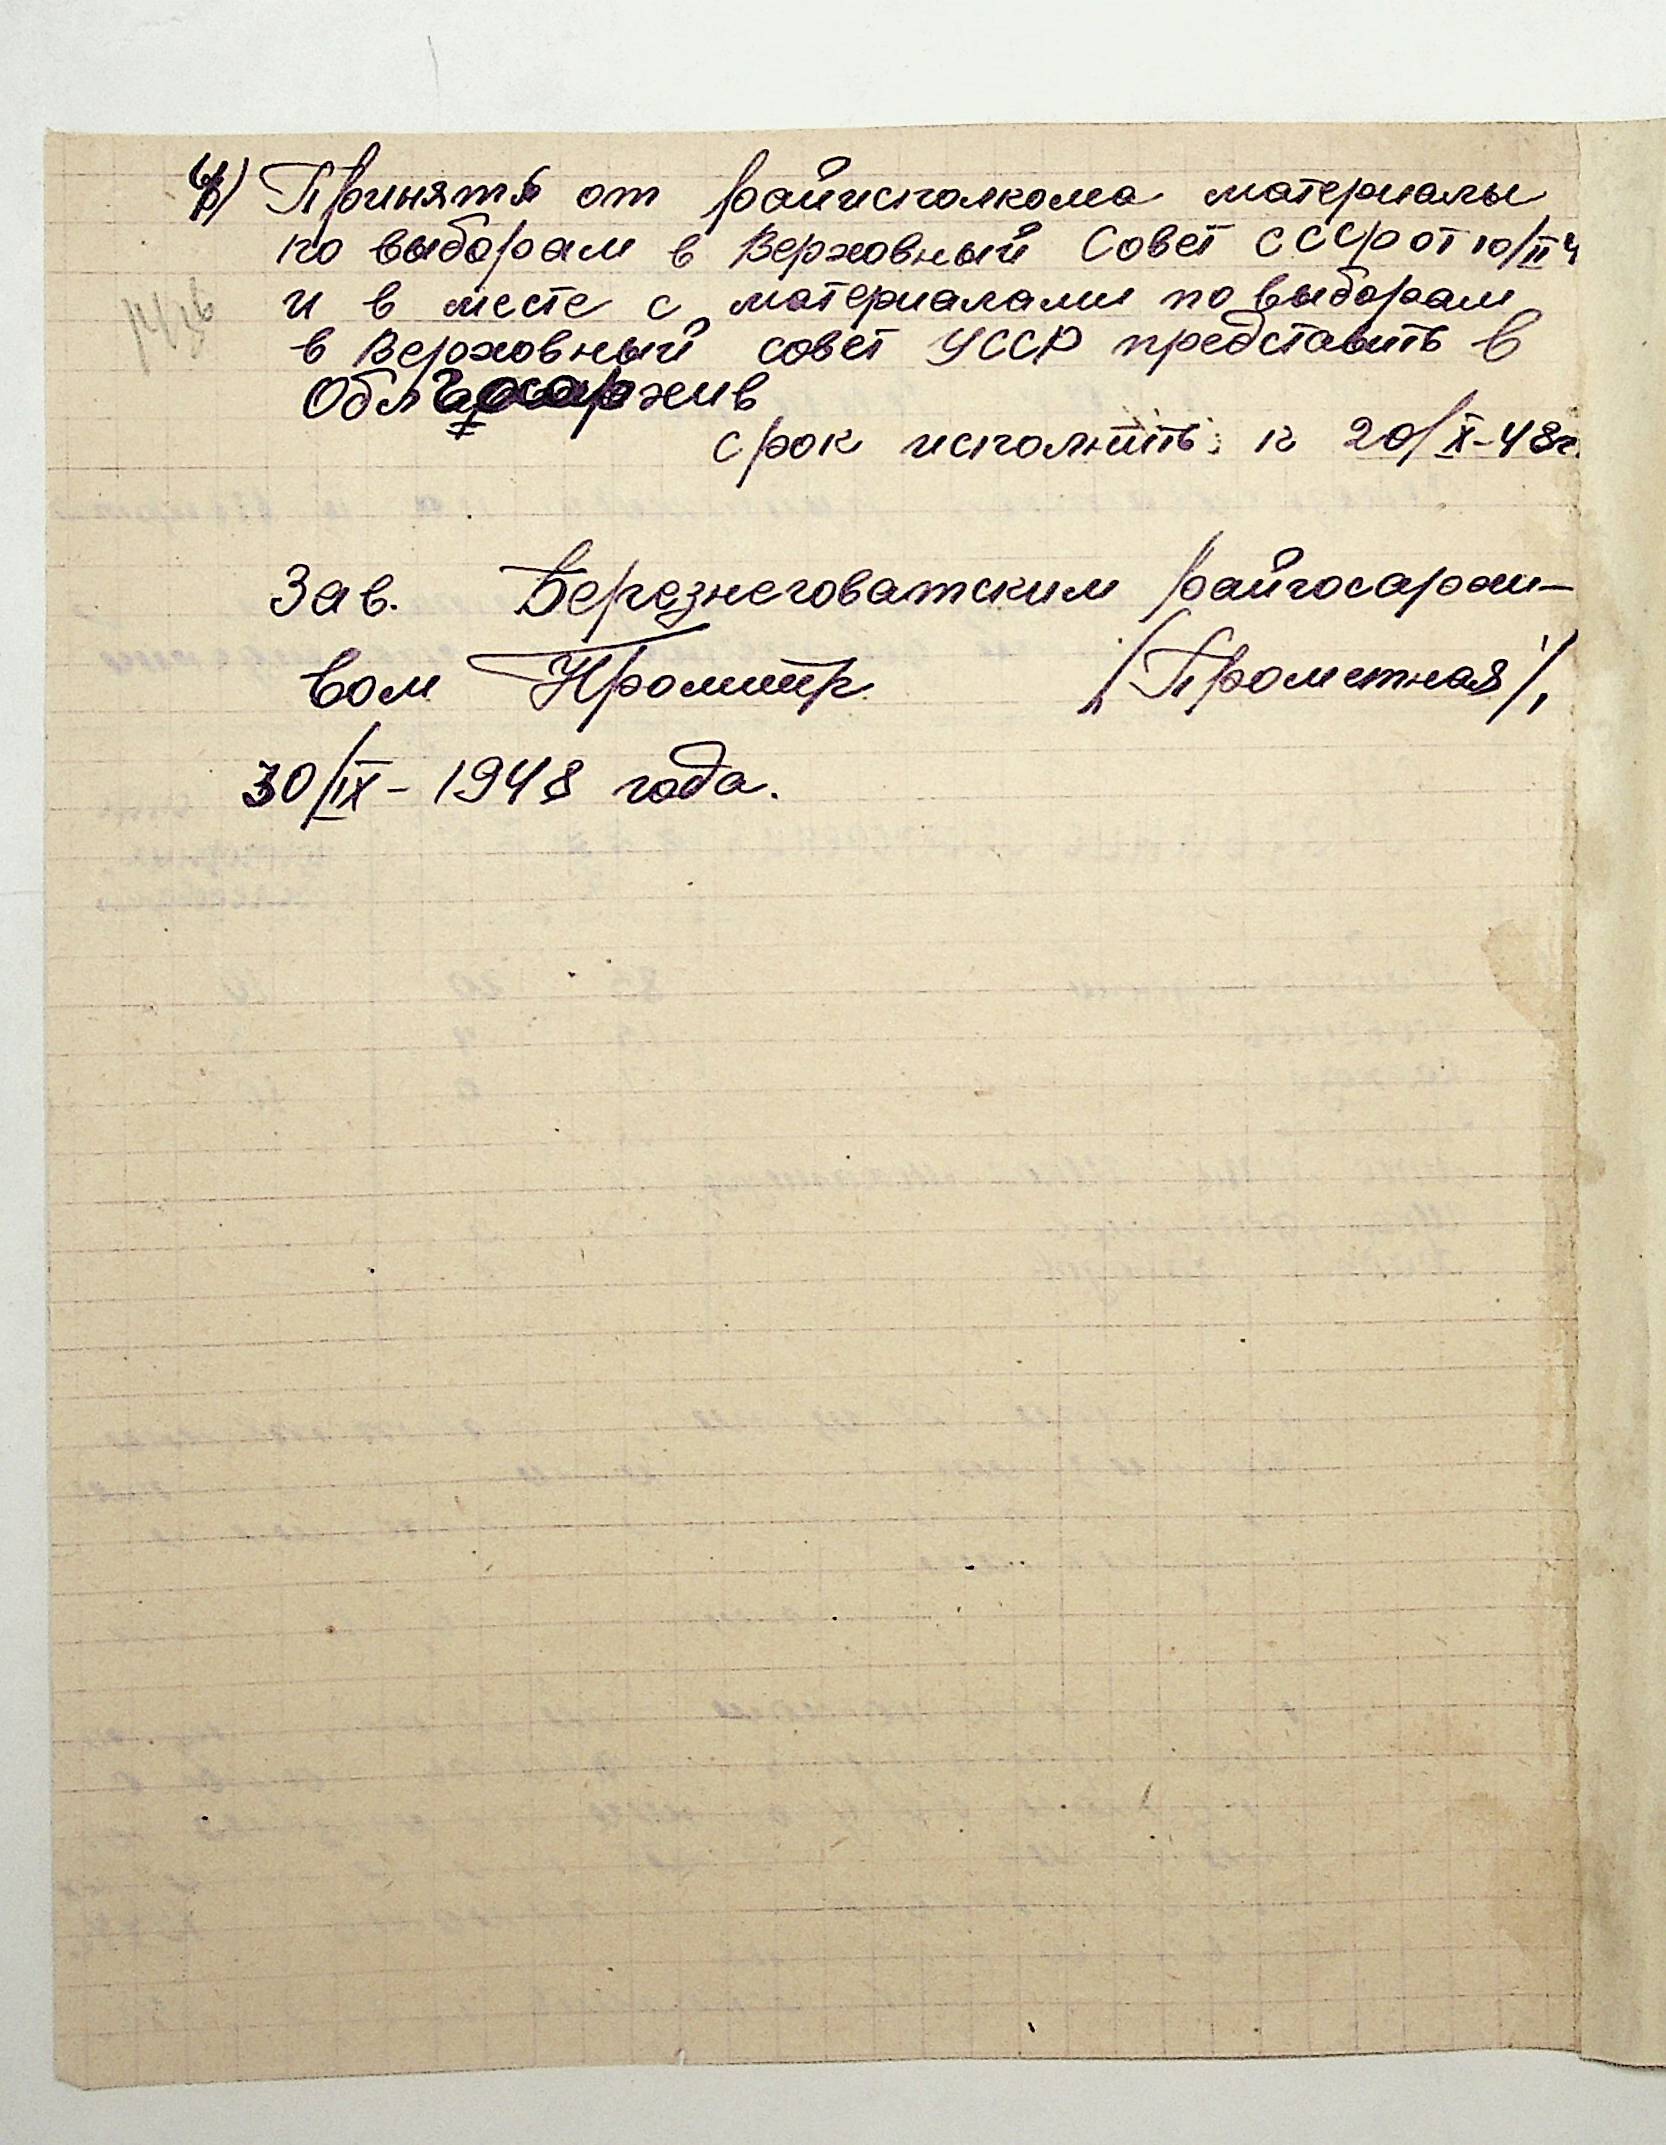 Принять от райисполкома материалы
по выборам в Верховный Совет СССР от 10/II 4
и в месте с материалами по выборам
в Верховный совет УССР представить в
Облгосархив
срок исполнить: к 20/X-48г.
Зав. Березнеговатским райгосархи-
вом /Прометная/,
30/IX - 1948 года.